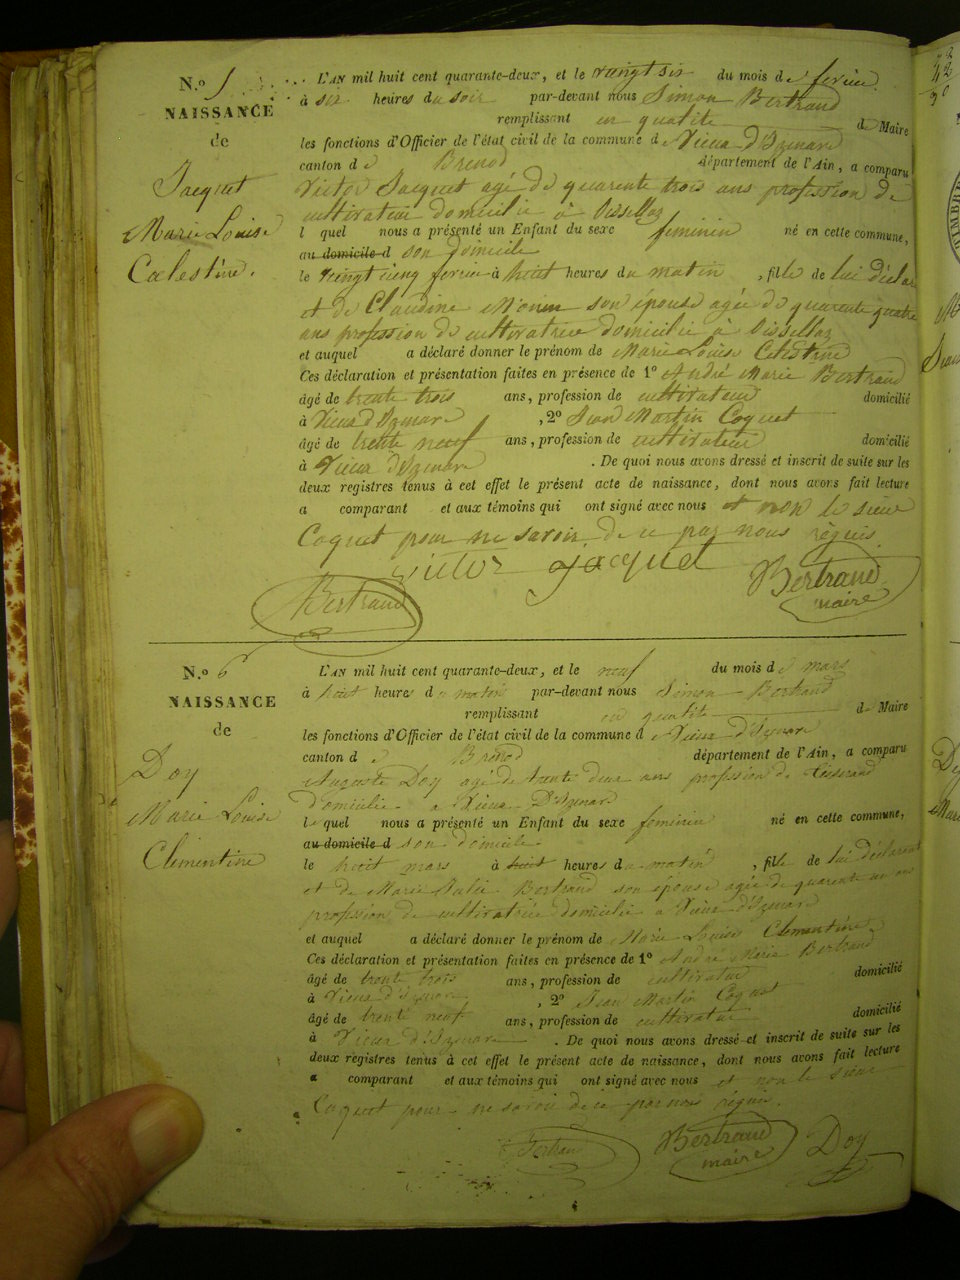 N.o 5
NAISSANCE
de
Jacquet
Marie Louise
Cœlestine.
L'AN mil huit cent quarante-deux, et le vingt six du mois de fevrier.
à six heures du soir par-devant nous Simon Bertrand
remplissant en qualité de Maire
les fonctions d'Officier de l'état civil de la commune de Vieux d'Izenave
canton de Brenod département de l'Ain, a comparu
Victor Jacquet agé de quarente trois ans profession de
cultivateur domicilié à
l quel nous a présenté un Enfant du sexe feminin né en cette commune,
au domicile d son domicile
le vingt cinq fevrier à huit heures du matin , fille de lui déclar
et de Claudine son épouse agée de quarente quatre
ans profession de cultivatrice domicilié à
et auquel a déclaré donner le prénom de Marie Louise Celestine
Ces déclaration et présentation faites en présence de 1o André Marie Bertrand
âgé de trente trois ans, profession de cultivateur domicilié
à Vieux d'Izenave , 2o Jean Martin Coquet
âgé de trente neuf ans, profession de cultivateur domicilié
à Vieux d'Izenave . De quoi nous avons dressé et inscrit de suite sur les
deux registres tenus à cet effet le présent acte de naissance, dont nous avons fait lecture
a comparant et aux témoins qui ont signé avec nous et non le sieur
Coquet pour ne savoir de ce par nous réquis.
Victor Jacquet
Bertrand
Bertrand
maire
N.o 6
NAISSANCE
de
Doy
Marie Louise
Clementine
L'AN mil huit cent quarante-deux, et le neuf du mois de mars
à huit heures du matin par-devant nous Simon Bertrand
remplissant en qualité de Maire
les fonctions d'Officier de l'état civil de la commune d Vieux d'Izenave
canton de Brenod département de l'Ain, a comparu
Auguste Doy agé de trente deux ans profession de
domicilié a Vieux D'Izenave
le quel nous a présenté un Enfant du sexe feminin né en cette commune,
au domicile d son domicile
le huit mars à huit heures du matin , fille de lui déclarant
et de Marie Bertrand son épouse agée de quarente
profession de cultivatrice domicilié a Vieux d'Izenave
et auquel a déclaré donner le prénom de Marie Louise Clementine
Ces déclaration et présentation faites en présence de 1o André Marie Bertrand
âgé de trente trois ans, profession de cultivateur domicilié
à Vieux d'Izenave , 2o Jean Martin Coquet
âgé de trente neuf ans, profession de cultivateur domicilié
à Vieux d'Izenave . De quoi nous avons dressé et inscrit de suite sur les
deux registres tenus à cet effet le présent acte de naissance, dont nous avons fait lecture
a comparant et aux témoins qui ont signé avec nous et non le sieur
Coquet pour ne savoir de ce par nous réquis.
Bertrand
Bertrand
maire
Doy